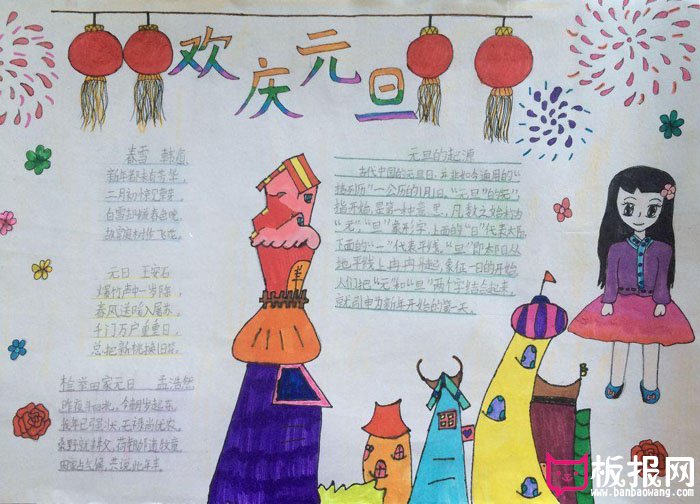 欢庆元旦
春雪 韩愈
新年都未有芳华,
二月初惊见草芽
白雪却嫌春色晚,
故穿庭树作飞花。
元日 王安石
爆竹声中一岁除,
春风送暖入屠苏,
千门万户曈曈日,
总把新桃换旧符。
田家元日 孟浩然
昨夜斗回北,今朝岁起东,
我年已强仕,无禄尚忧农,
桑野就耕父,荷锄随牧童,
田家占气候,共说此年丰。
元旦的起源
古代中国的元旦日,并非如今通用的"
格列历"一公历的1月1日,"元旦"的"元"
指开始,是第一的意思,凡数之始称为
"元","旦"象形字,上面的"日"代表太阳,
下面的"一"代表平线,"旦"即太阳从
地平线上冉冉升起,象征一日的开始
人们把"元"和"旦"两个字结合起来,
就引申为新年开始的第一天。
板报网
www.banbaowang.com